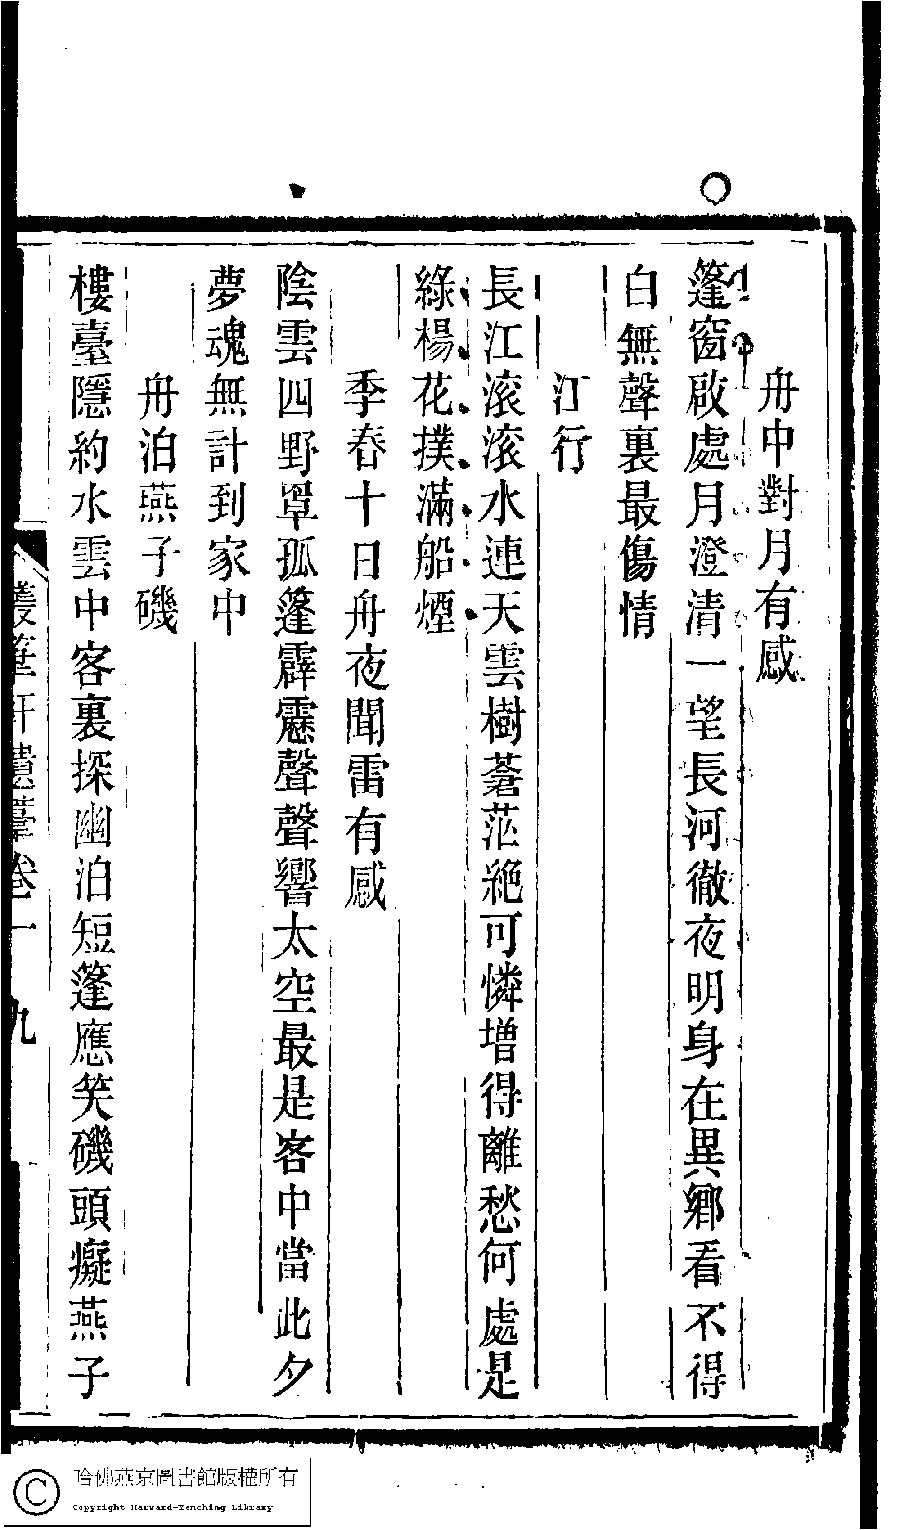 舟中對月有感
篷窗啟處月澄清一望長河徹夜明身在異鄉看不得
白無聲裏最傷情
江行
長江滾滾水連天雲樹蒼茫絕可憐增得離愁何處是
綠楊花撲滿船煙
季春十日舟夜聞雷有感
陰雲四野罩孤篷霹靂聲聲響太空最是客中當此夕
夢魂無計到家中
舟泊燕子磯
樓臺隱約水雲中客裏探幽泊短篷應笑磯頭癡燕子
軒遺藁卷一 九
哈佛燕京圖書館版權所有
Copyright Harvard-Yenching Library